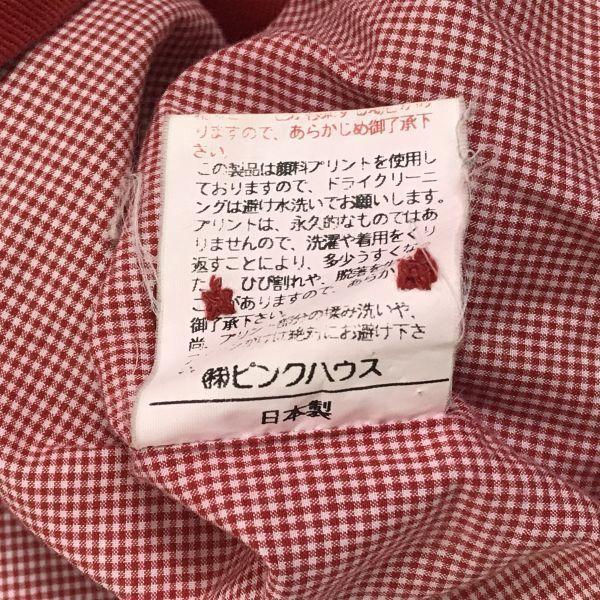 りますので、あらかじめ御了承下
さい。
この製品は顔料プリントを使用し
ておりますので、ドライクリーニ
ングは避け水洗いでお願いします。
プリントは、永久的なものではあ
りませんので、洗濯や着用をくり
返すことにより、多少うすくなっ
た ひび割れや、脱落を
こ がありますので、あらか
御了承下さい。
尚、プリント部分の揉み洗いや、
は絶対にお避け下さ
㈱ピンクハウス
日本製